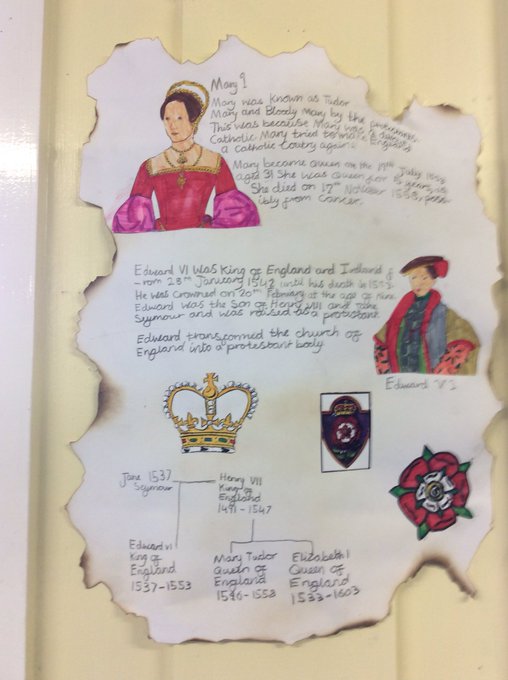 Mary I
Mary was known as Tudor
Mary and Bloody Mary by the protestants
This was because Mary was a
Catholic Mary tried to make England
a Catholic Coutry again
Mary became Queen on the 19th July 1553
aged 31 She was Queen for 5 years,
She died on 17th November 1558, poss-
ibly from cancer.
Edward VI was King of England and Ireland f
-rom 28th January 1547 until his death in 1553.
He was crowned on 20th February at the age of nine
Edward was the Son of Henry VIII and Jane
Seymour and was raised as a protestant
Edward transformed the church of
England into a protestant body
Edward VI
Jane 1537
Seymour
Henry VII
King of
England
1491 - 1547
Edward VI
King of
England
1537-1553
Mary Tudor
Queen of
England
1516-1558
Elizabeth I
Queen of
England
1533-1603